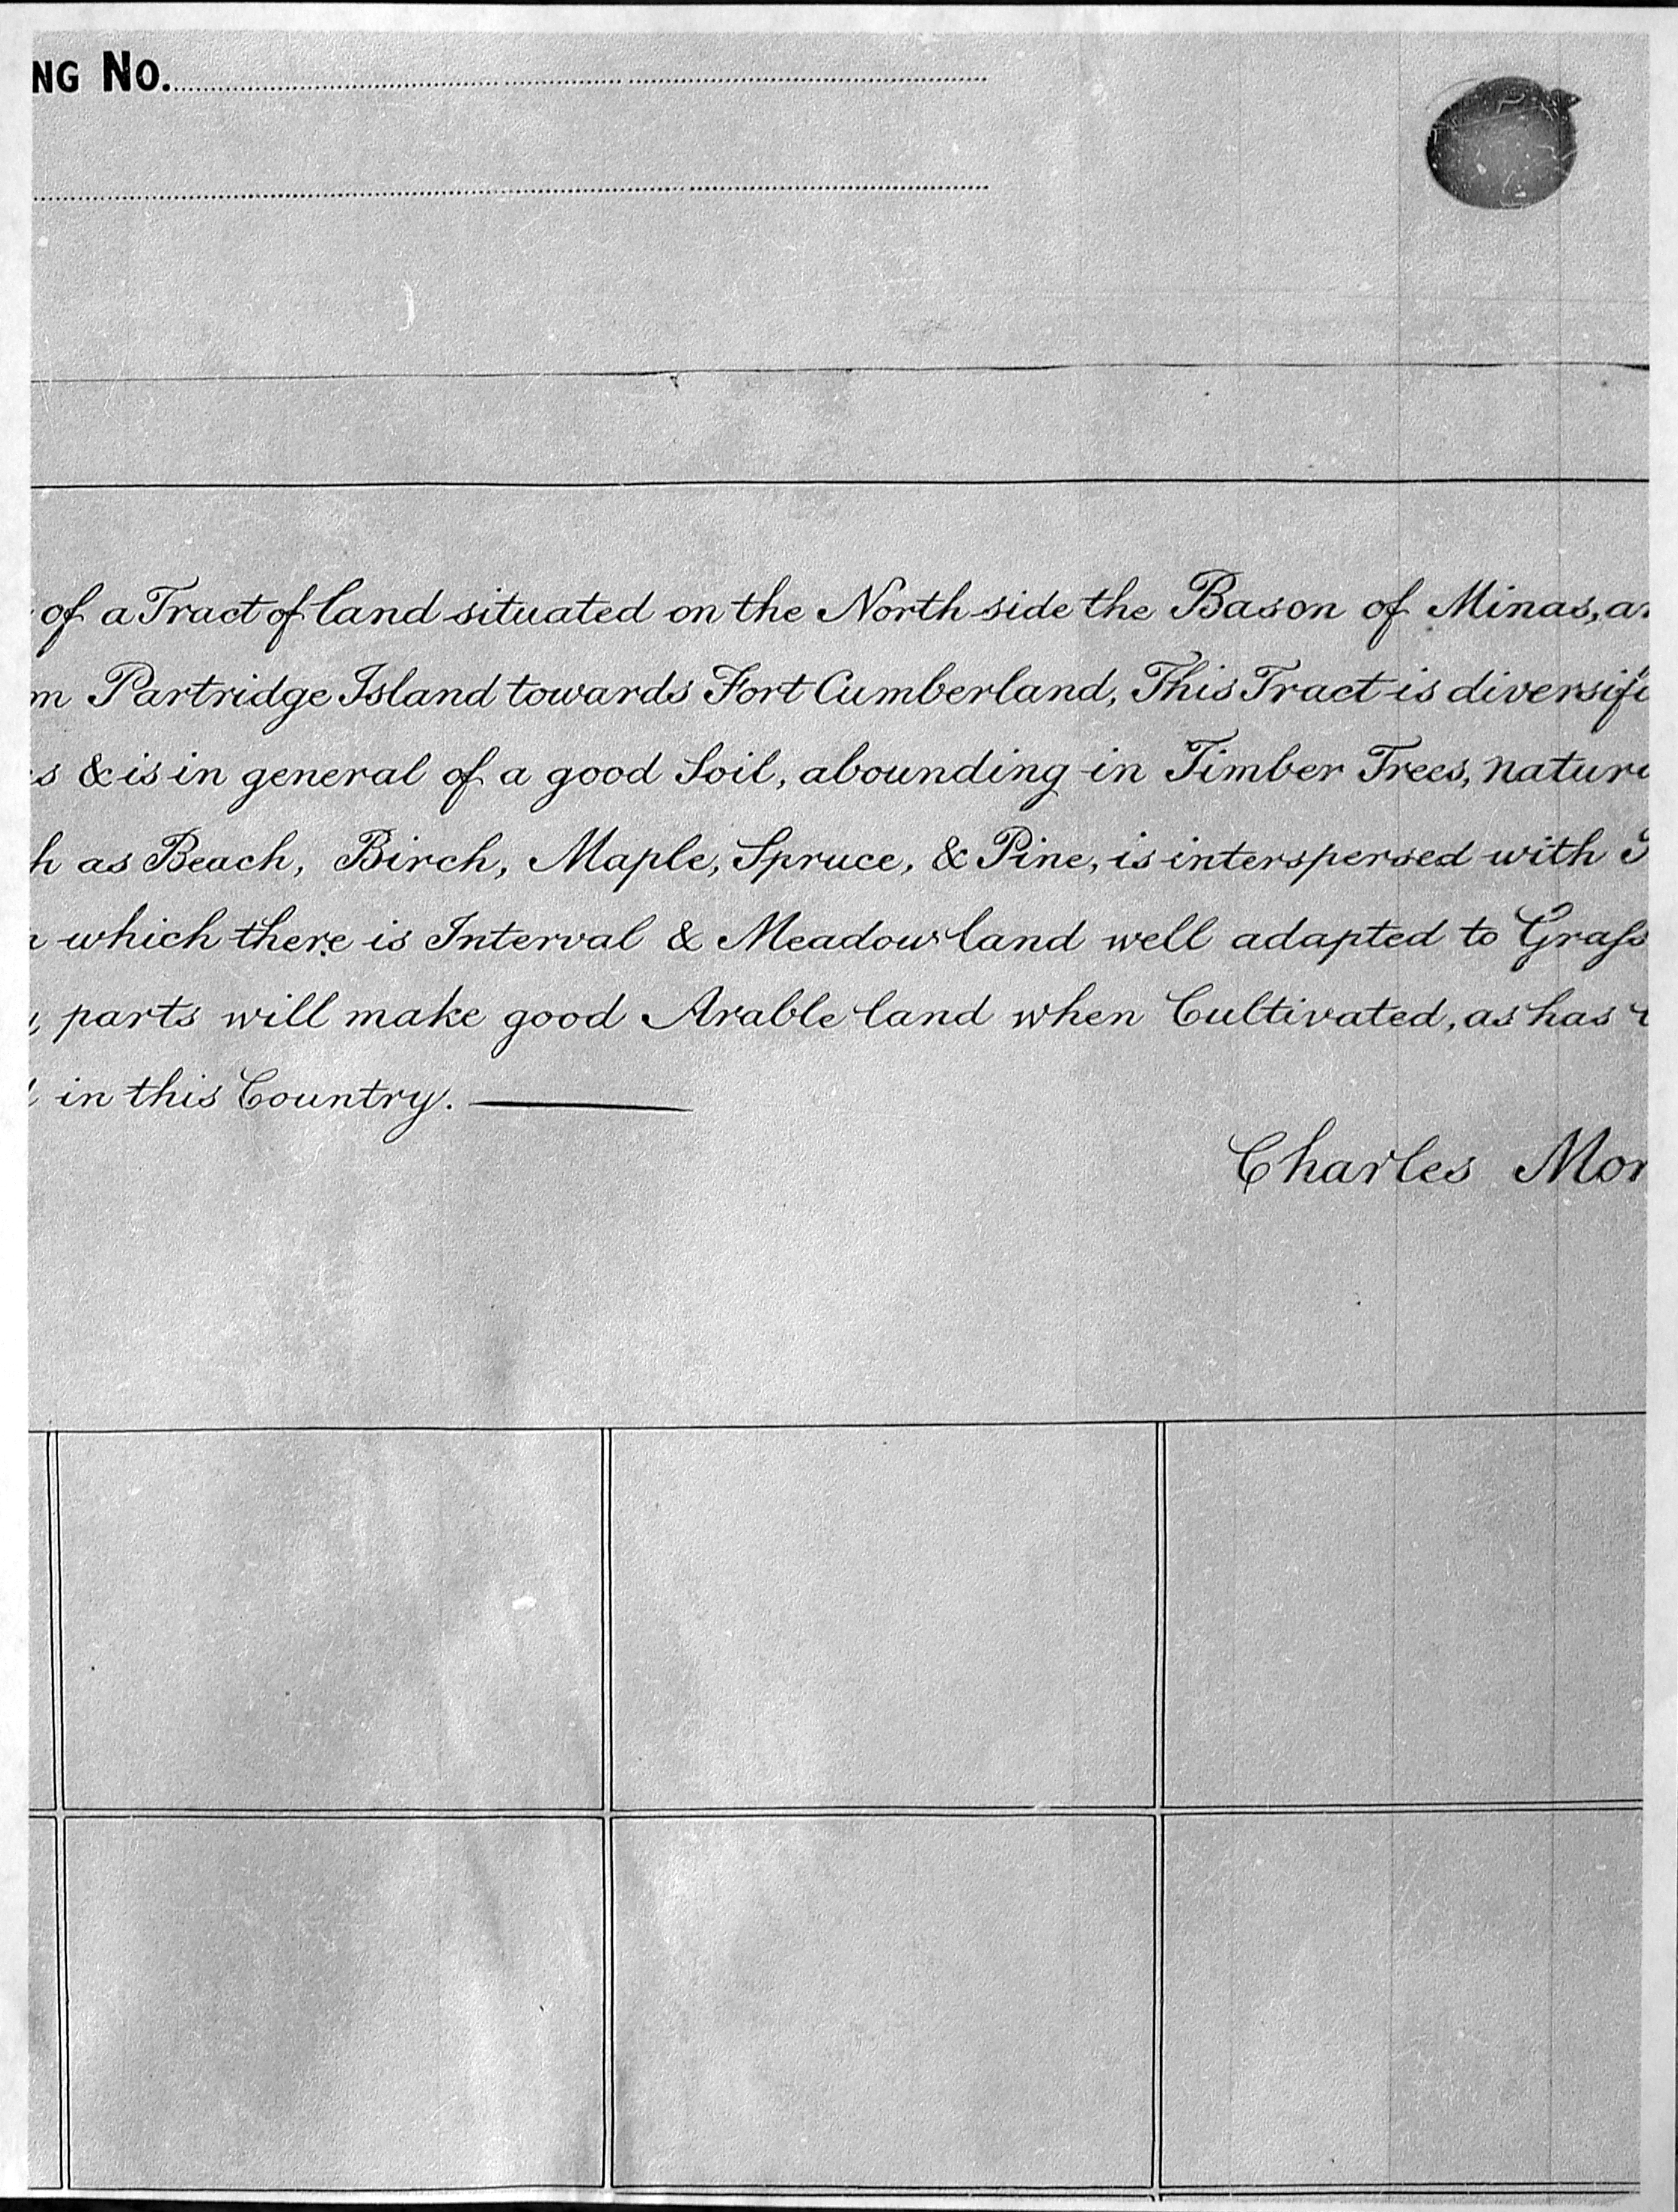 NG No.
of a Tract of land situated on the North side the Bason of Minas, a
m Partridge Island towards Fort Cumberland, This Tract is diversifi
s & is in general of a good Soil, abounding in Timber Trees, natur
h as Beach, Birch, Maple, Spruce, & Pine, is interspersed with
which there is Interval & Meadow land well adapted to Grass
parts will make good Arable land when Cultivated, as has
in this Country.
Charles Mor